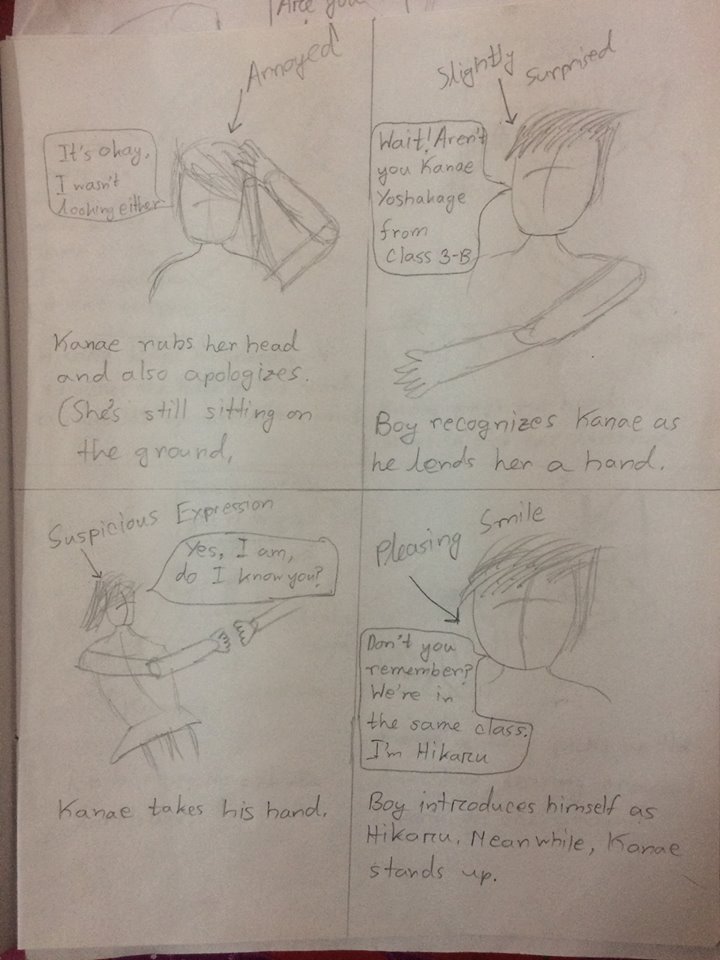 Are you
Annoyed
It's okay,
I wasn't
looking either
Kanae rubs her head
and also apologizes.
(She's still sitting on
the ground,
Slightly Surprised
Wait! Aren't
you Kanae
Yoshakage
from
Class 3-B
Boy recognizes Kanae as
he lends her a hand.
Suspicious Expression
Yes, I am,
do I know you?
Kanae takes his hand.
Pleasing Smile
Don't you
remember?
We're in
the same class.
I'm Hikaru
Boy introduces himself as
Hikaru. Meanwhile, Kanae
stands up.